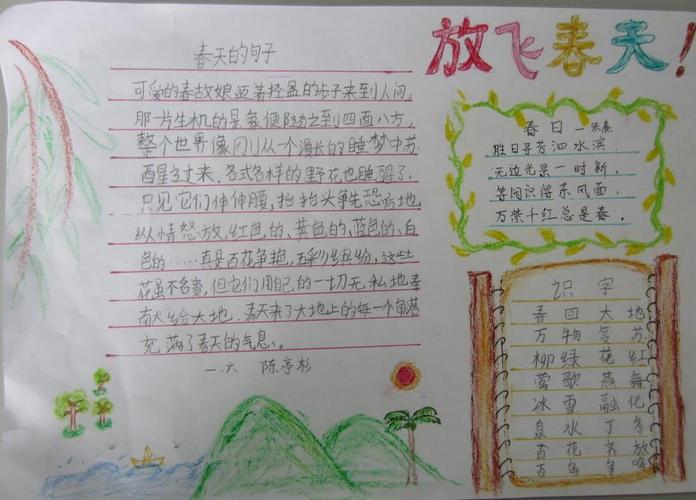 放飞春天!
春天的句子
可爱的春故娘迈着轻盈的步子来到人间,
那一片生机的景象便随之到四面八方,
整个世界像刚从一个漫长的睡梦中苏
醒了过来,各式各样的野花也睡醒了.
只见它们伸伸腰,抬抬头争先恐后地
纵情怒放,红色的、黄色的、蓝色的、白
色的……真是百花争艳,五彩缤纷,这些
花虽不名贵,但它们用自己的一切无私地奉
献给大地.春天来了大地上的每一个角落
充满了春天的气息。
一.六 陈亭杉
春日 —朱熹
胜日寻芳泗水滨,
无边光景一时新,
等闲识得东风面,
万紫千红总是春.
识字
春回大地
万物复苏
柳绿花红
莺歌燕舞
冰雪融化
泉水丁冬
百花齐放
百鸟争鸣